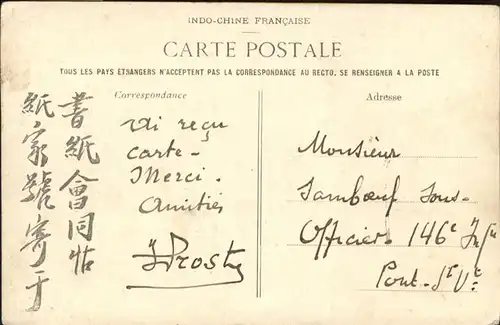 INDO-CHINE FRANÇAISE
CARTE POSTALE
TOUS LES PAYS ETRANGERS N'ACCEPTENT PAS LA CORRESPONDANCE AU RECTO. SE RENSEIGNER A LA POSTE
Correspondance
Adresse
書紙會同帖
紙家號寄于
Ai reçu
carte-
Merci.
Amitiés
Prost
Monsieur
Sambœuf Sous-
Officier 146e Inf
Pont-St Vt